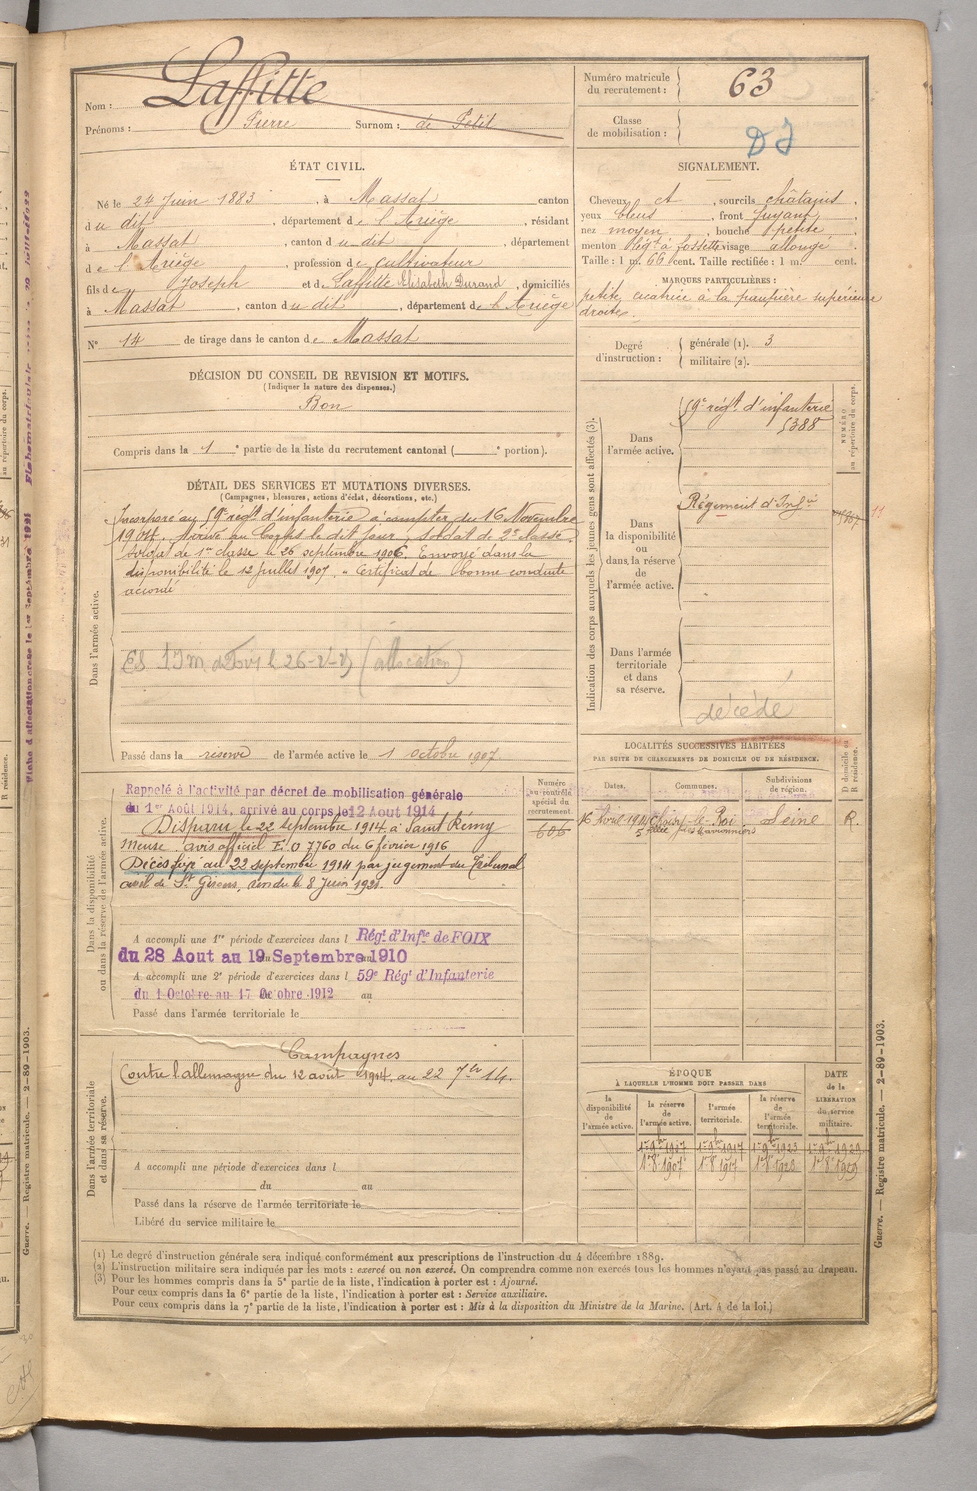 Nom : Laffitte
Prénoms : Pierre Surnom : de Petit
Numéro matricule du recrutement : 63
Classe de mobilisation :
ÉTAT CIVIL.
Né le 24 Juin 1883, à Massat canton
du dit, département de l'Ariège, résidant
à Massat, canton du dit, département
de l'Ariège, profession de cultivateur
fils de Joseph et de Laffitte Elisabeth Durand, domiciliés
à Massat, canton du dit, département de l'Ariège
N° 14 de tirage dans le canton de Massat
SIGNALEMENT.
Cheveux ct, sourcils châtains,
yeux bleus, front fuyant,
nez moyen, bouche petite,
menton à fossette visage allongé
Taille : 1 m. 66 cent. Taille rectifiée : 1 m. cent.
MARQUES PARTICULIÈRES :
petite cicatrice à la paupière supérieure
droite.
Degré d'instruction : générale (1). 3
militaire (2).
DÉCISION DU CONSEIL DE REVISION ET MOTIFS.
(Indiquer la nature des dispenses.)
Bon
Compris dans la 1e partie de la liste du recrutement cantonal ( e portion).
DÉTAIL DES SERVICES ET MUTATIONS DIVERSES.
(Campagnes, blessures, actions d'éclat, décorations, etc.)
Dans l'armée active.
Incorporé au 59e régt d'infanterie à compter du 16 Novembre
1904. Arrivé au Corps le dit jour, soldat de 2e classe.
Soldat de 1re classe le 26 septembre 1906. Envoyé dans la
disponibilité le 12 juillet 1907. Certificat de bonne conduite
accordé
(allocation)
Passé dans la réserve de l'armée active le 1 octobre 1907
Indication des corps auxquels les jeunes gens sont affectés (3).
NUMÉRO au répertoire du corps.
Dans l'armée active.
59e régt d'infanterie
5388
Dans la disponibilité ou dans la réserve de l'armée active.
Régiment d'Infie
11
Dans l'armée territoriale et dans sa réserve.
décédé
Dans la disponibilité ou dans la réserve de l'armée active.
Numéro au contrôle spécial du recrutement
606
Rappelé à l'activité par décret de mobilisation générale
du 1er Août 1914, arrivé au corps le 12 Aout 1914
Disparu le 22 septembre 1914 à Saint Rémy
Meuse. avis officiel E. O 7760 du 6 février 1916
Décès fixé au 22 septembre 1914 par jugement du Tribunal
civil de St Girons, rendu le 8 Juin 1921.
A accompli une 1re période d'exercices dans l Régt d'Infie de FOIX
du 28 Aout au 19 Septembre 1910
A accompli une 2e période d'exercices dans l 59e Régt d'Infanterie
du 1 Octobre au 17 Octobre 1912 au
Passé dans l'armée territoriale le
LOCALITÉS SUCCESSIVES HABITÉES
PAR SUITE DE CHANGEMENTS DE DOMICILE OU DE RÉSIDENCE.
D domicile ou R résidence.
Dates. Communes. Subdivisions de région.
16 Avril 1914 Choisy-le-Roi Seine R.
5 allée des Marronniers
Dans l'armée territoriale et dans sa réserve.
Campagnes
Contre l'allemagne du 12 août 1914 au 22 7bre 14.
A accompli une période d'exercices dans l
du au
Passé dans la réserve de l'armée territoriale le
Libéré du service militaire le
ÉPOQUE
À LAQUELLE L'HOMME DOIT PASSER DANS
DATE de la LIBÉRATION du service militaire.
la disponibilité de l'armée active. la réserve de l'armée active. l'armée territoriale. la réserve de l'armée territoriale.
1er 8bre 1907 1er 8bre 1917
(1) Le degré d'instruction générale sera indiqué conformément aux prescriptions de l'instruction du 4 décembre 1889.
(2) L'instruction militaire sera indiquée par les mots : exercé ou non exercé. On comprendra comme non exercés tous les hommes n'ayant pas passé au drapeau.
(3) Pour les hommes compris dans la 5e partie de la liste, l'indication à porter est : Ajourné.
Pour ceux compris dans la 6e partie de la liste, l'indication à porter est : Service auxiliaire.
Pour ceux compris dans la 7e partie de la liste, l'indication à porter est : Mis à la disposition du Ministre de la Marine. (Art. 4 de la loi.)
Guerre. — Registre matricule. — 2-89-1903.
Guerre. — Registre matricule. — 2-89-1903.